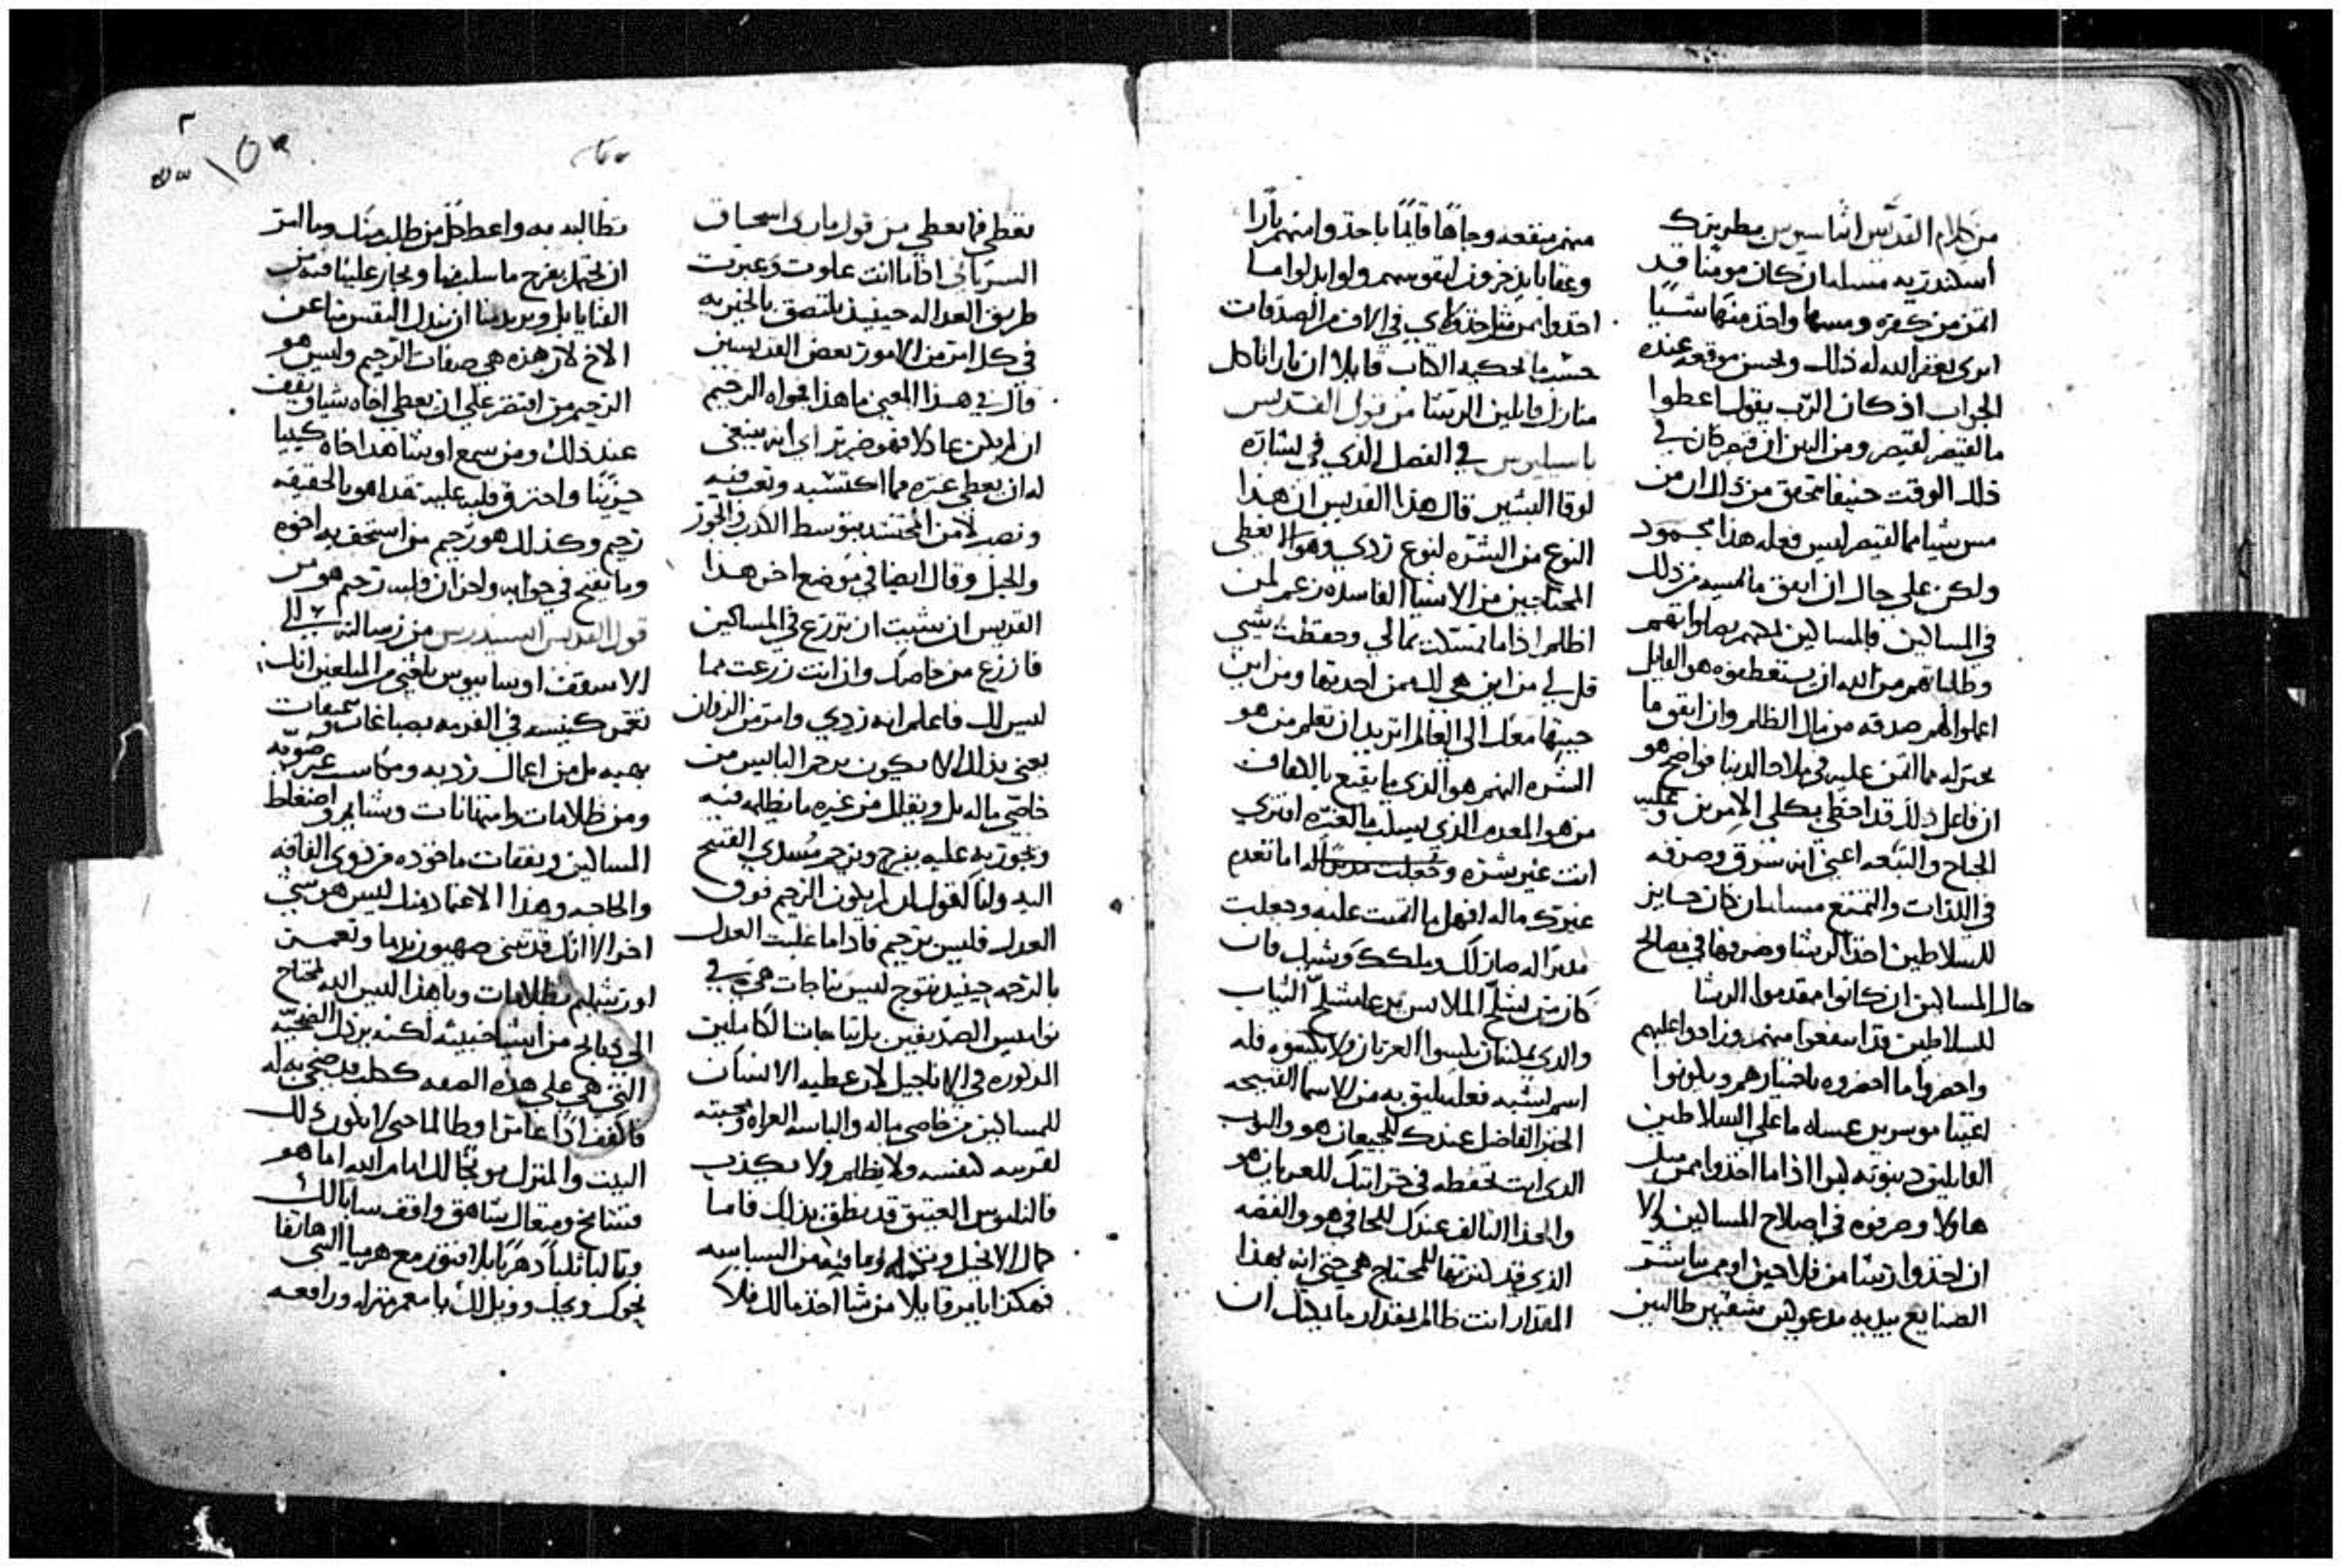 من كلام القديس اثناسيوس بطريرك
اسكندريه مسله ان كان مومنا قد
اتمن من كفره ومسها واخذ منها شيا
اترى يغفر الله له ذلك ويحسن موقعه عنده
الجواب اذ كان الرب يقول اعطوا
ما لقيصر لقيصر ومن البين ان قيصر كان في
ذلك الوقت حنيفا فتحقق من ذلك ان من
مس شيا مما لقيصر ليس فعله هذا بمحمود
ولكن على حال ان انفق ما مسه من ذلك
في المساكين فالمساكين بصلواتهم
وطلباتهم من الله ان يستعطفوه هو القايل
اعملوا لهم صدقه من مال الظلم وان انفق ما
مما اتمن عليه في ملاذ الدنيا فواضح هو
ان فاعل ذلك قد اخطى بكلى الامرين وعليه
الجناح والتبعه اعني انه سرق وصرفه
في اللذات والتمتع مسله ان كان جايز
للسلاطين اخذ الرشا وصرفها في مصالح
حال المساكين ان كانوا مقدموا الرشا
للسلاطين قد انتفعوا منهم وزادوا عليهم
واحضروا ما احضروه باختيارهم ويكونوا
اغنيا موسرين ما على السلاطين
القابلين دينونه كبرا اذا ما اخذوا ممن مثل
هاولا وصرفوه في اصلاح المساكين ولا
ان اخذوا رشا من فلاحين او ممن يباشر
الصنايع بيديه مدعوكين مشقيين طالبين
منهم منفعه وجاها فايما ياخذوا منهم نارا
وعقابا يذخرون لنفوسهم ولو ابدلوا ما
اخذوا من مثل هاولاي في الاف من الصدقات
حسبما يحكيه الكتاب قايلا ان نارا تاكل
منازل قابلين الرشا من قول القديس
باسيليوس في الفصل الذي في بشارة
لوقا البشير قال هذا القديس ان هذا
النوع من الشره لنوع ردي وهو الا يعطى
المحتاجين من الاشيا الفاسده زعم لمن
اظلم اذا ما تمسكت بمالي وحفظت شيي
قل لي من اين هي لك ممن اخذتها ومن اين
جبتها معك الى العالم اتريد ان تعلم من هو
الشره النهم هو الذي ما يقنع بالكفاف
من هو المعدم الذي يسلب ما لغيره افترى
انت غير شره وجعلت اما تعدم
غيرك ماله افهل ما اتمنت عليه وجعلت
مدبرا له صار لك وملكك وبشرك فان
كان من يشلح الملابس يدعا مشلح الثياب
والذي يمكنه ان يكسوا العريان ولا يكسوه فله
اسم يشبه فعله يليق به من الاسما القبيحه
الخبز الفاضل عندك للجيعان هو والثوب
الذي انت تحفظه في خزاينك للعريان هو
والحذا التالف عندك للحافي هو والفضه
الذي قد للمحتاج هي حتى انه بهذا
المقدار انت ظالم بمقدار ما يمكنك ان
تعطي فما تعطي من قول ماري اسحاق
السرياني اذا ما انت علوت وعبرت
طريق العداله حينيذ تلتصق بالحريه
في كل امر من الامور بعض القديسين
قال في هذا المعنى ما هذا فحواه الرحيم
ان لم يكن عادلا فهو ضرير اي انه ينبغي
له ان يعطي غيره مما اكتسبه وتعب فيه
ونصب لا من المحتشد بتوسط الكذب والجور
والحيل وقال ايضا في موضع اخر هذا
القديس ان شيت ان تزرع في المساكين
فازرع من خاصك وان انت زرعت مما
ليس لك فاعلم انه ردي وامر من الزوان
يعنى بذلك الا يكون يرحم البايس من
خاصي ماله بل ويقبل من غيره ما يظلمه فيه
ويجوز به عليه بفرح ويرحم مسدي القبيح
اليه وانا اقول ان لم يكون الرحيم فوق
العدل فليس برحيم فاذا ما غلبت العدل
بالرحمه حينيذ تتوج ليس بتاجات هي في
نواميس الصديقين بل بتاجات الكاملين
المذكوره في الاناجيل لان عطيه الانسان
للمساكين من خاصي ماله والباسه العراه ومحبته
لقريبه كنفسه ولا يظلم ولا يكذب
فالناموس العتيق قد نطق بذلك فاما
كمال الانجيل وما فيه من السياسه
فهكذا يامر قايلا من شا اخذ مالك فلا
تطالبه به واعط كل من طلب منك وما
ان نحتمل بفرح ما سلبنا ويجار علينا فيه من
القنايا بل ويريدنا ان نبذل النفس منا عن
الاخ لان هذه هي صفات الرحيم وليس هو
الرحيم من اقتصر على ان يعطي اخاه شيا ويقف
عند ذلك ومن سمع او شاهد اخاه كييبا
حزينا واحترق قلبه عليه هذا هو بالحقيقه
رحيم وكذلك هو رحيم من استخف به اخوه
وما يقبح في جوابه واحزان قلبه رحيم هو من
قول القديس ايسيدرس من رسالته الى
الاسقف اوسابيوس بلغني من المبلغين انك
تعمر كنيسه في الفرمه بصباغات وتنميقات
بهيه بل من اعمال رديه ومكاسب غير صويه
ومن ظلامات وامتهانات وشتايم واضغاط
المساكين ونفقات ماخوذه من ذوي الفاقه
والحاجه وهذا الاعتماد منك ليس هو شي
اخر الا انك قد تبنى صهيون بدما وتعمر
اورشليم بظلامات وما هذا ليس الله محتاج
الى ذبايح من اشيا خبيثه لكنه يرذل الضحيه
التي هي على هذه الصفه ككلب قد ضحي به له
فاكفف اذا عامرا وظالما حتى لا يكون لك
البيت والمنزل موبخا لك امام الله اما هو
فشامخ ومتعال شاهق واقف سابا لك
وثالبا ثلبا دهريا بلا فتور مع هرميا النبي هاتفا
نحوك وعليك ووبل لك يا معمر منزله ورافعه